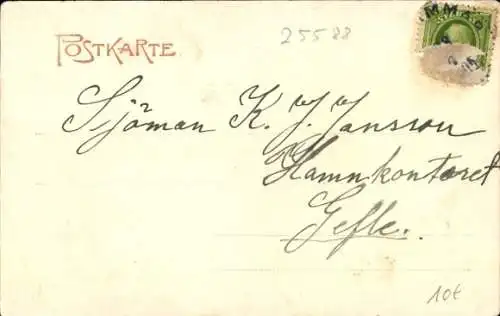 POSTKARTE
25588
Sjöman K. J. Jansson
Hamnkontoret
Gefle.
10€